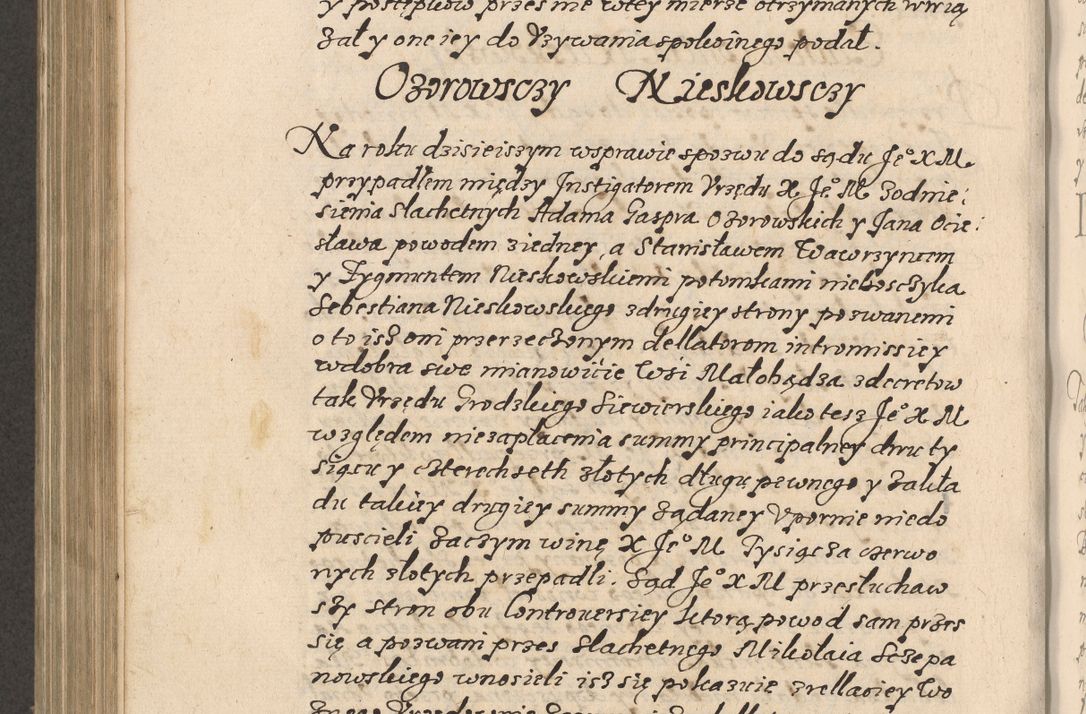 y postępkow przes nie wtey mierze otrzymanych wwią
zał y one iey do Vzywania spokoinego podał.
Ozorowsczy Nieskowsczy
Na roku dzisieiszym wsprawie spozwu do sądu Je° X M
przypadłem między Instigatorem Vrzędu X Je° M Zodnie:
sienia slachetnych Adama Gaspra Ozorowskich y Jana Ocie:
sława powodem ziedney, a Stanisławem Wawrzyncem
y Zygmuntem Nieskowskiemi potomkami nieboszczyka
Sebestiana Nieskowskiego zdrugiey strony pozwanemi
o to isz oni przerzeczonym dellatorom intromissiey
wdobra swe mianowicie Wsi Małobądza zdecretow
tak Vrzędu Grodzkiego Siewierskiego iako tesz Je° X M
względem niezapłacenia summy principalney dwu ty
siącu y czterechseth złotych długu pewnego y zakła
du takiey drugiey summy ządaney Vpornie niedo
puscieli zaczym winę X Je° M Tysiącza czerwo
nych złotych przepadli. Sąd Je° X M przesłuchaw
szy stron obu Controuersiey ktorą powod sam przes
się a pozwani przes Slachetnego Mikołaia Sczepa
nowskiego wnosieli isz się pokazuie zrellaciey Wo